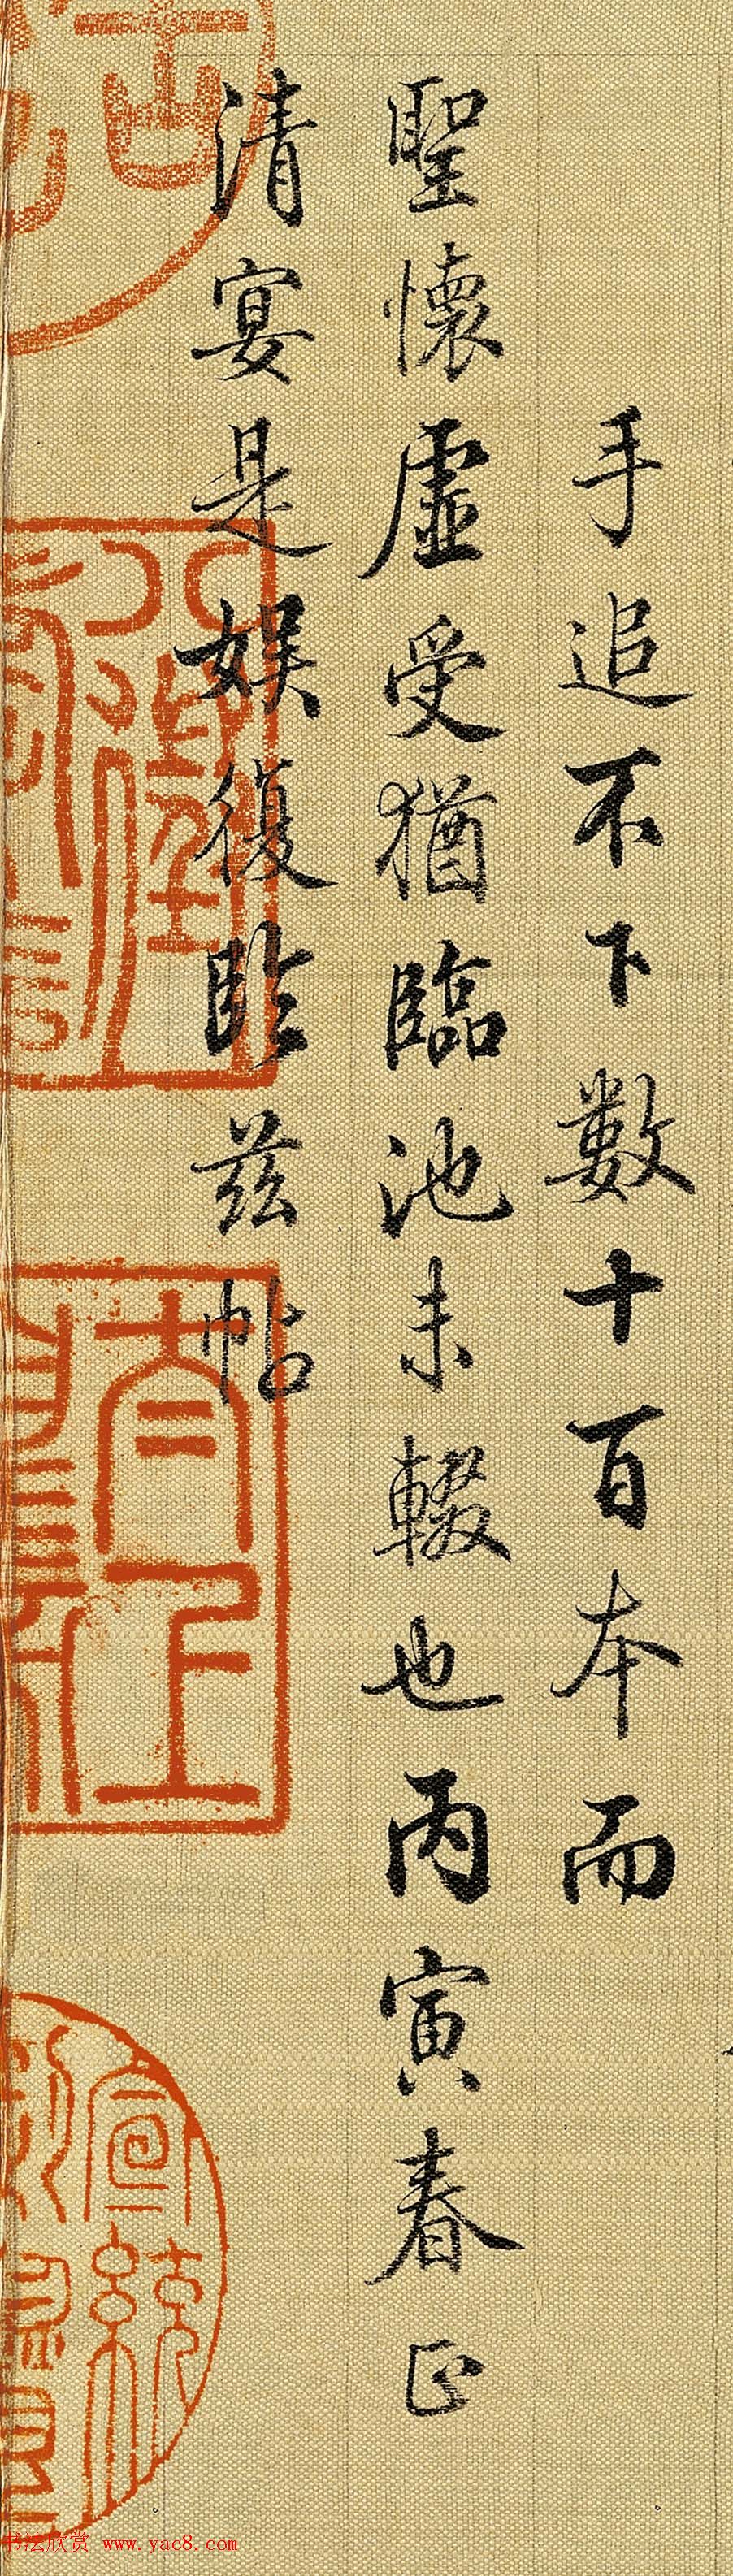 手追不下數十百本而
聖懷虛受猶臨池未輟也丙寅春正
清宴是娛復臨兹帖
太上
宣統
书法欣赏 www.yac8.com